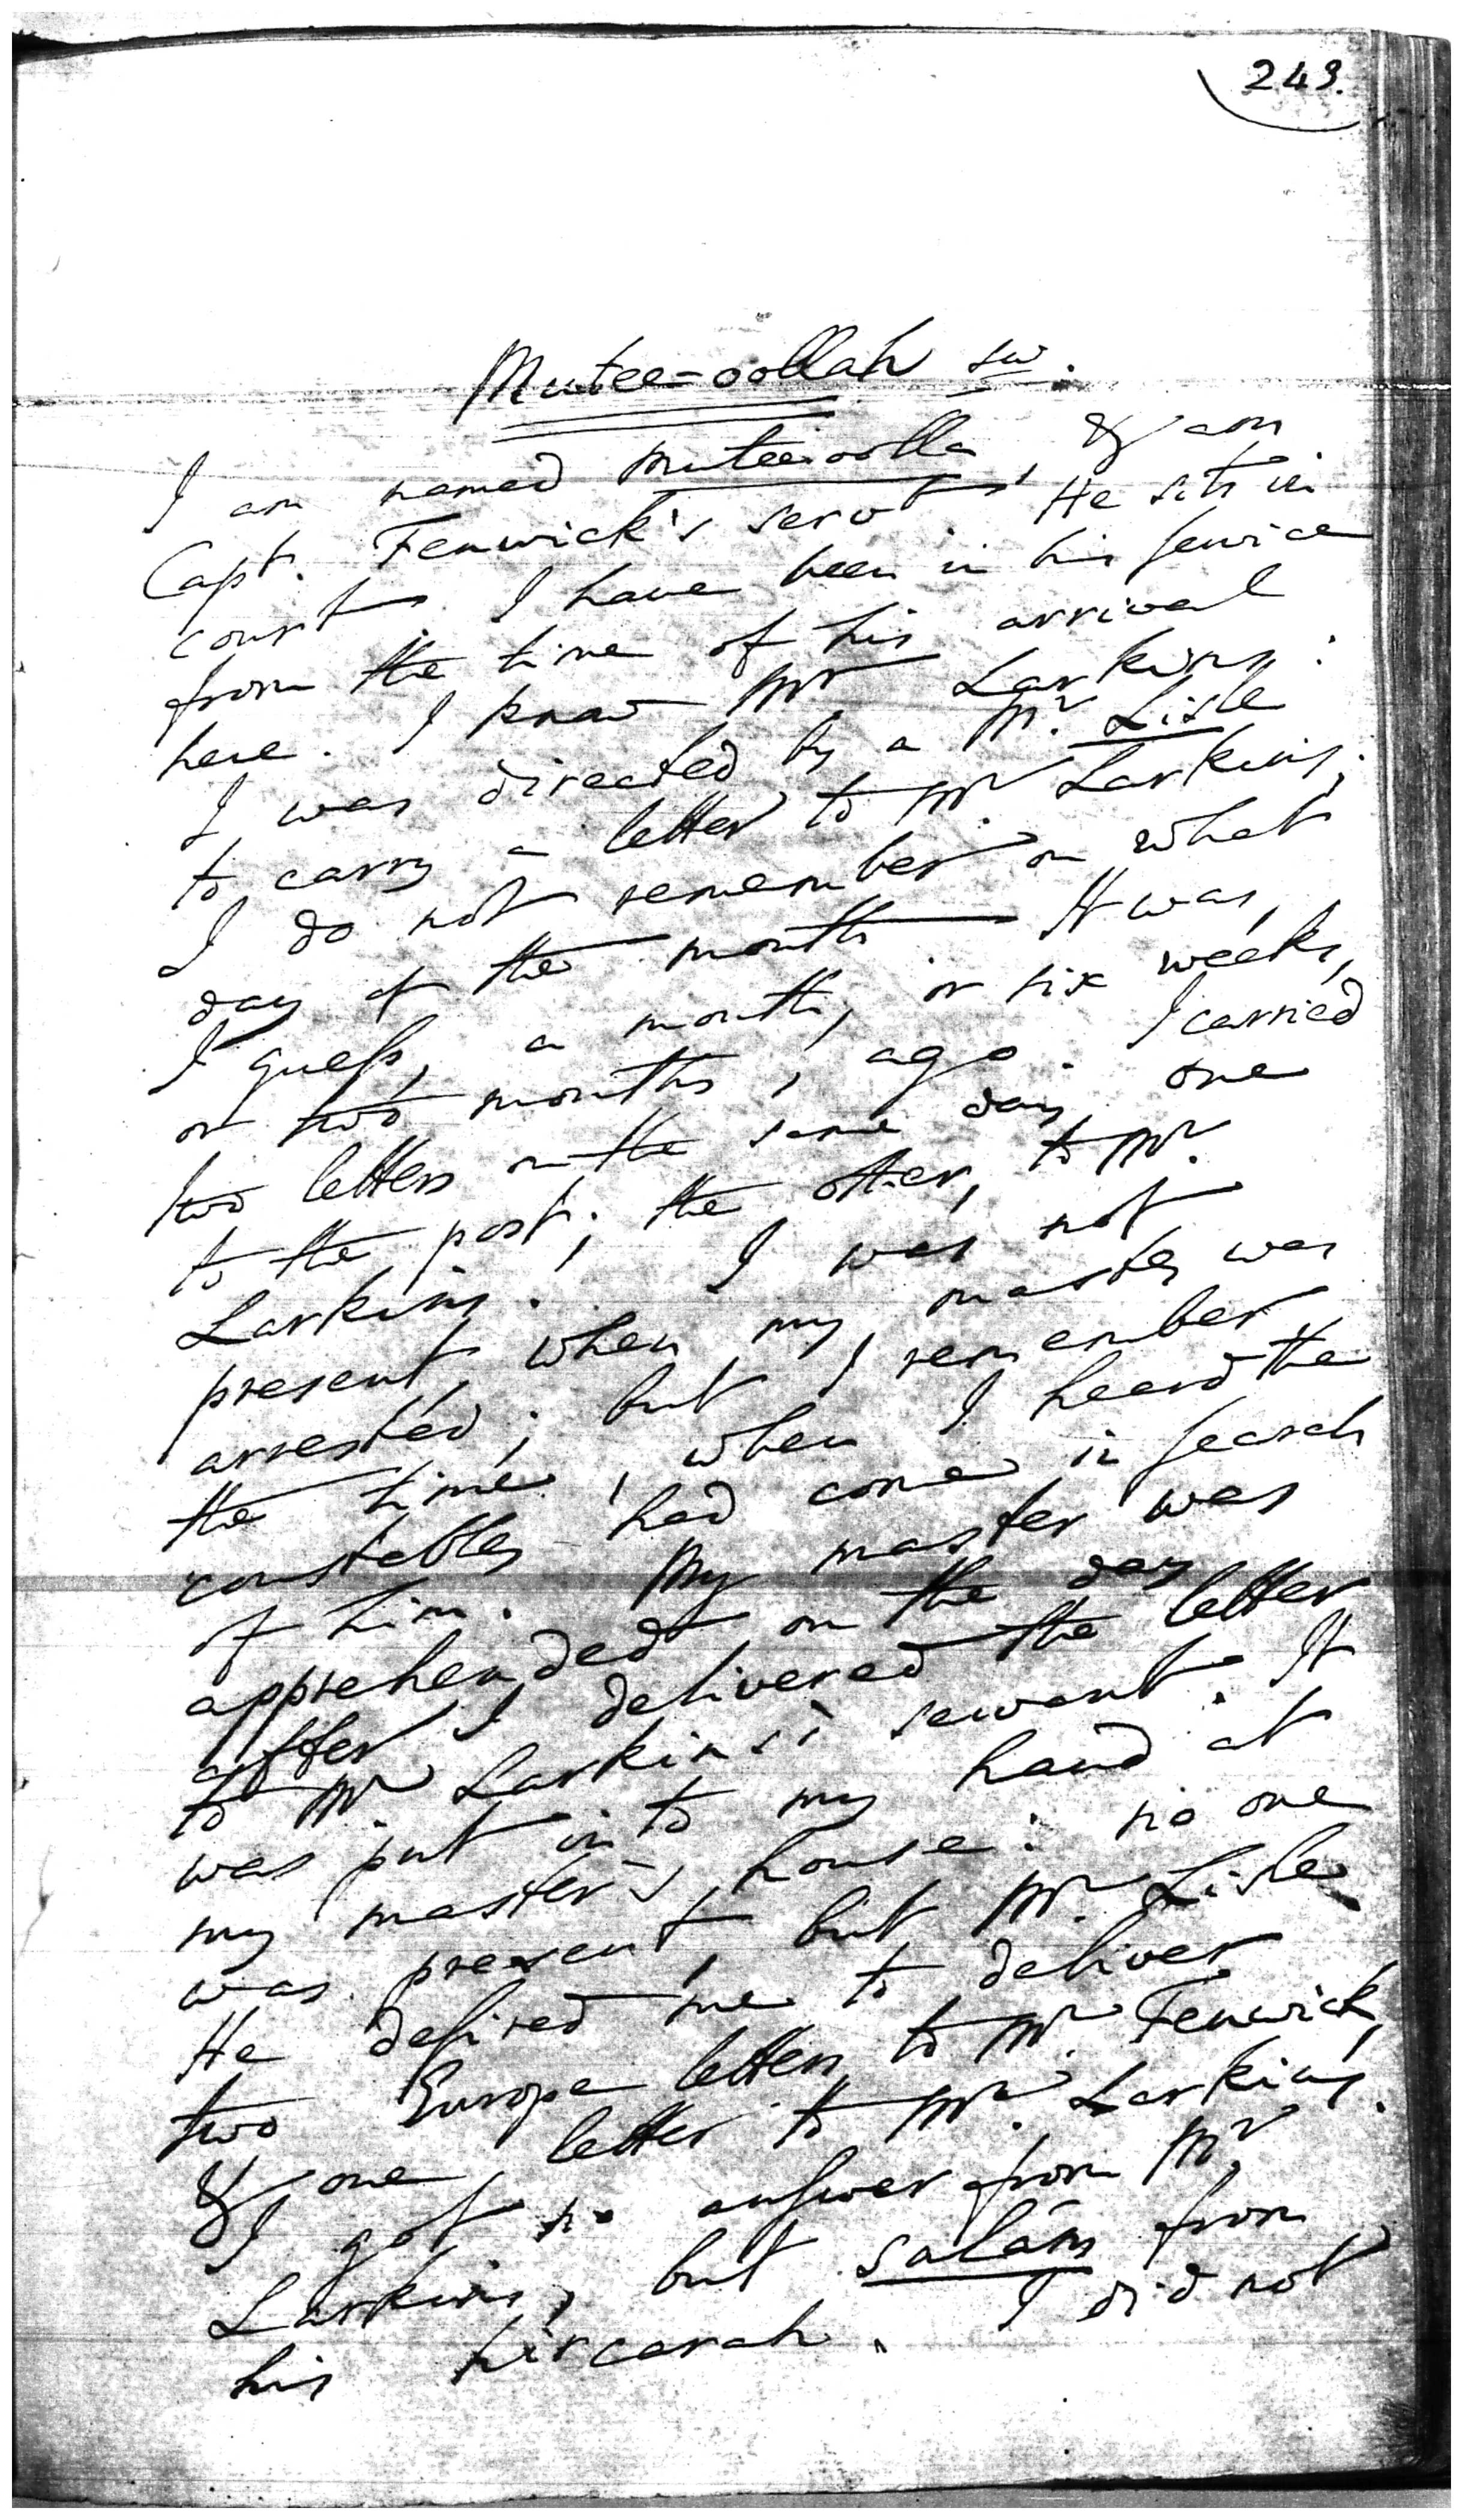 249.
Mutee-oollah sw.
I am named Mutee-oolla, & am
Capt. Fenwick's servt. He sits in
court. I have been in his service
from the time of his arrival
here. I know Mr. Larkins:
I was directed by a Mr. Lisle
to carry a letter to Mr. Larkins;
I do not remember on what
day of the month. It was,
I guess, a month, or six weeks,
or two months, ago. I carried
two letters on the same day, one
to the post; the other, to Mr.
Larkins. I was not
present, when my master was
arrested; but I remember
the time, when I heard the
constables had come in search
of him. My master was
apprehended on the day
after I delivered the letter
to Mr. Larkins's servant. It
was put into my hand at
my master's house: no one
was present, but Mr. Lisle
He desired me to deliver
two Europe letters to Mr. Fenwick,
& one letter to Mr. Larkins.
I got no answer from Mr.
Larkins, but salám from
his hircarah. I did not